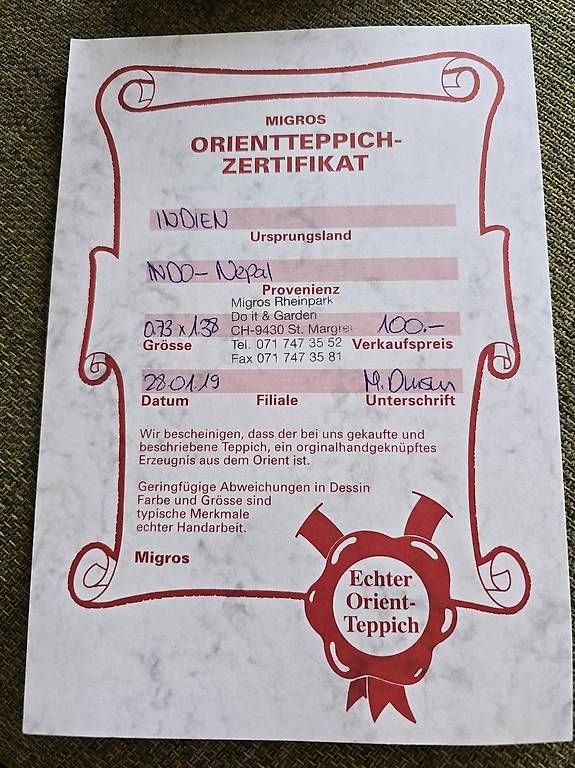 MIGROS
ORIENTTEPPICH-
ZERTIFIKAT
INDIEN
Ursprungsland
INDO- Nepal
Provenienz
Migros Rheinpark
Do it & Garden
0.73 x 1.38 CH-9430 St. Margre 100.-
Grösse Tel. 071 747 35 52 Verkaufspreis
Fax 071 747 35 81
28.01.19 M.
Datum Filiale Unterschrift
Wir bescheinigen, dass der bei uns gekaufte und
beschriebene Teppich, ein orginalhandgeknüpftes
Erzeugnis aus dem Orient ist.
Geringfügige Abweichungen in Dessin
Farbe und Grösse sind
typische Merkmale
echter Handarbeit.
Migros
Echter
Orient-
Teppich